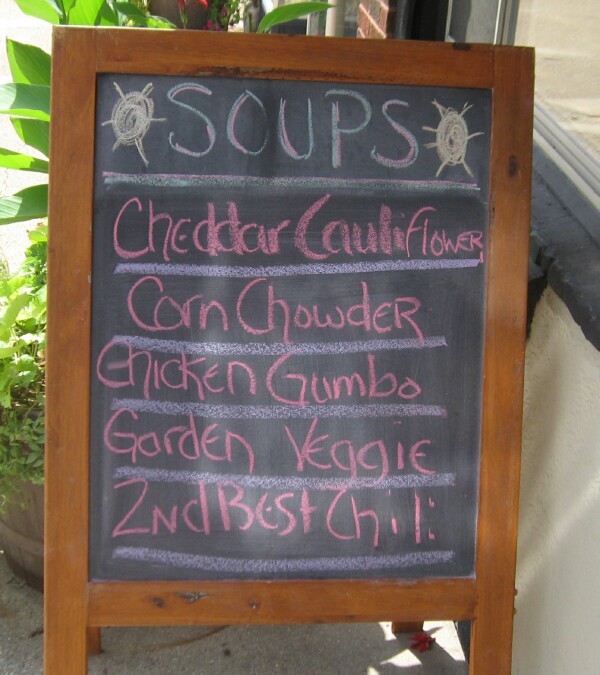 SOUPS
Cheddar CauliFlOWER
Corn ChowdeR
Chicken Gumbo
Garden Veggie
2nd Best Chili